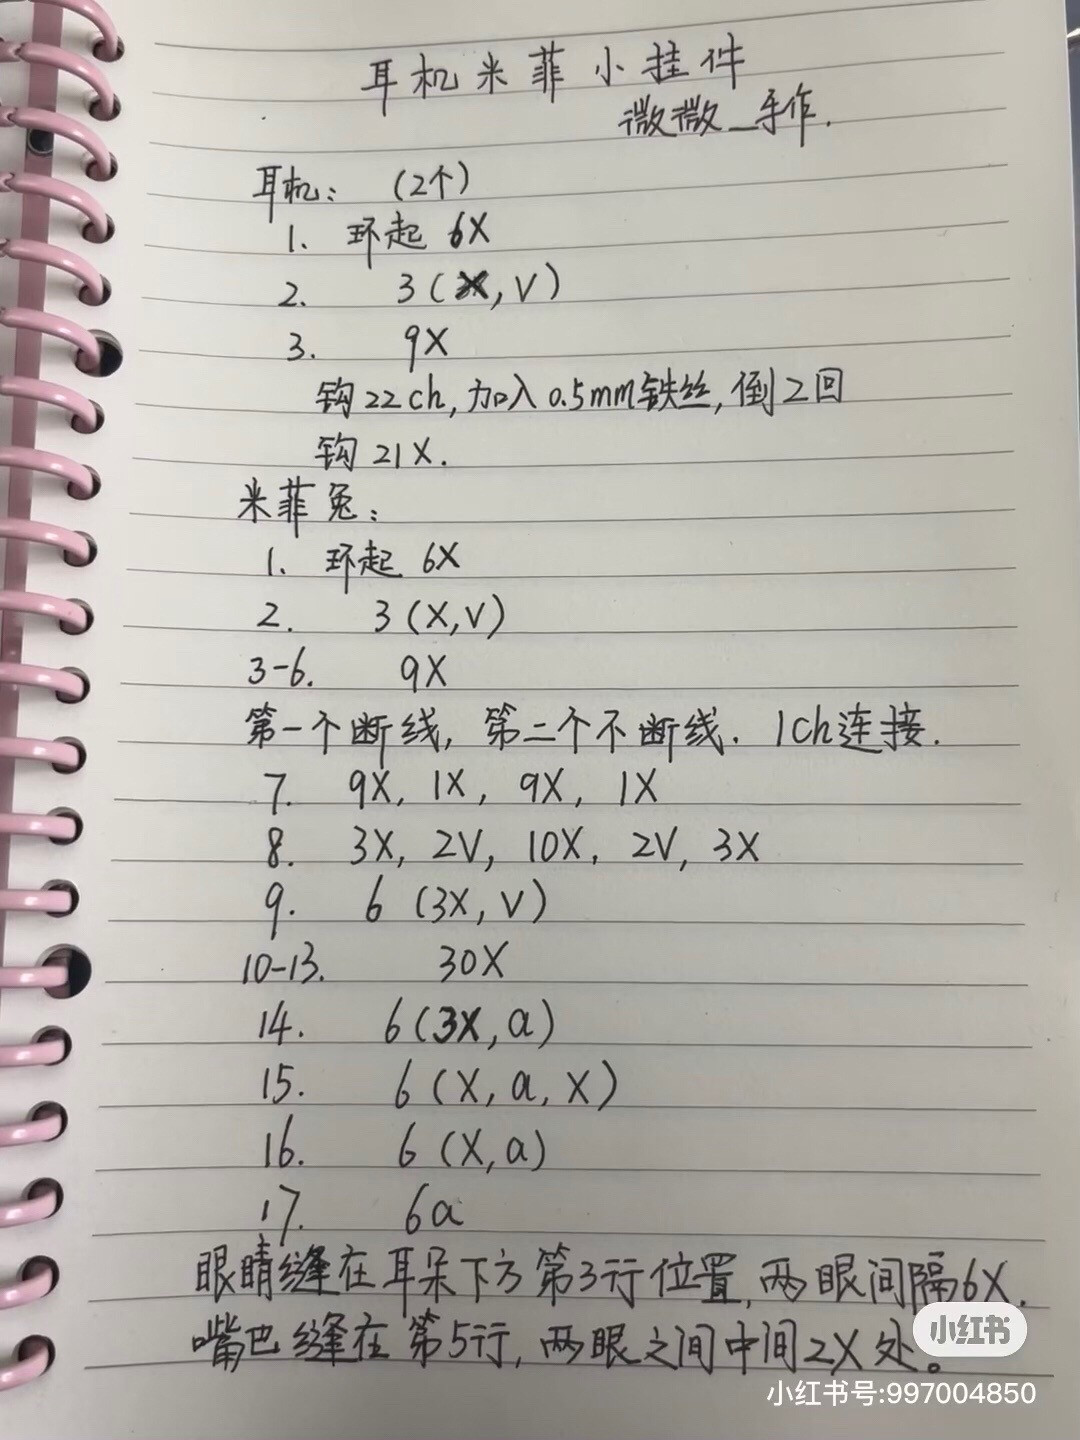 耳机米菲小挂件
微微_手作.
耳机: (2个)
1. 环起 6X
2. 3(X,V)
3. 9X
钩22ch,加入0.5mm铁丝,倒2回
钩21X.
米菲兔:
1. 环起 6X
2. 3(X,V)
3-6. 9X
第一个断线,第二个不断线. 1ch连接.
7. 9X, 1X, 9X, 1X
8. 3X, 2V, 10X, 2V, 3X
9. 6 (3X,V)
10-13. 30X
14. 6(3X,a)
15. 6(X,a,X)
16. 6 (X,a)
17. 6a
眼睛缝在耳朵下方第3行位置,两眼间隔6X.
嘴巴缝在第5行,两眼之间中间2X处。
小红书
小红书号:997004850